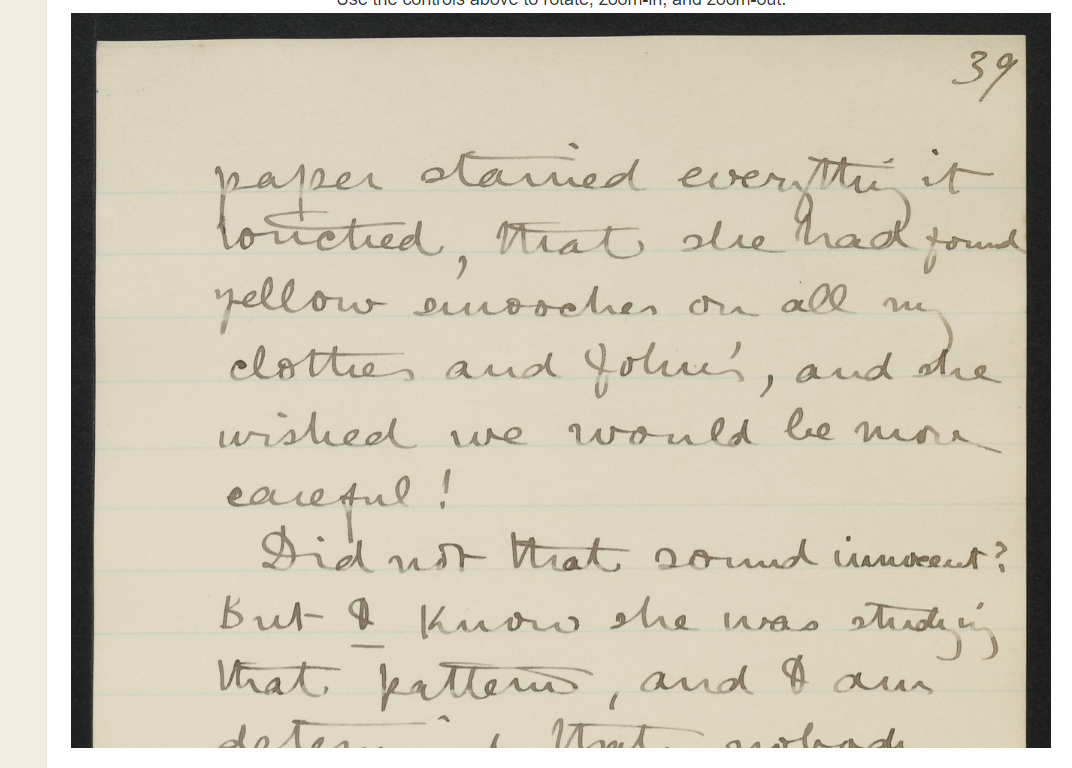 Use the controls above to rotate, zoom-in, and zoom-out.
39
paper stained everything it
touched, that she had found
yellow smooches on all my
clothes and John's, and she
wished we would be more
careful!
Did not that sound innocent?
But I know she was studying
that pattern, and I am
determined that nobody